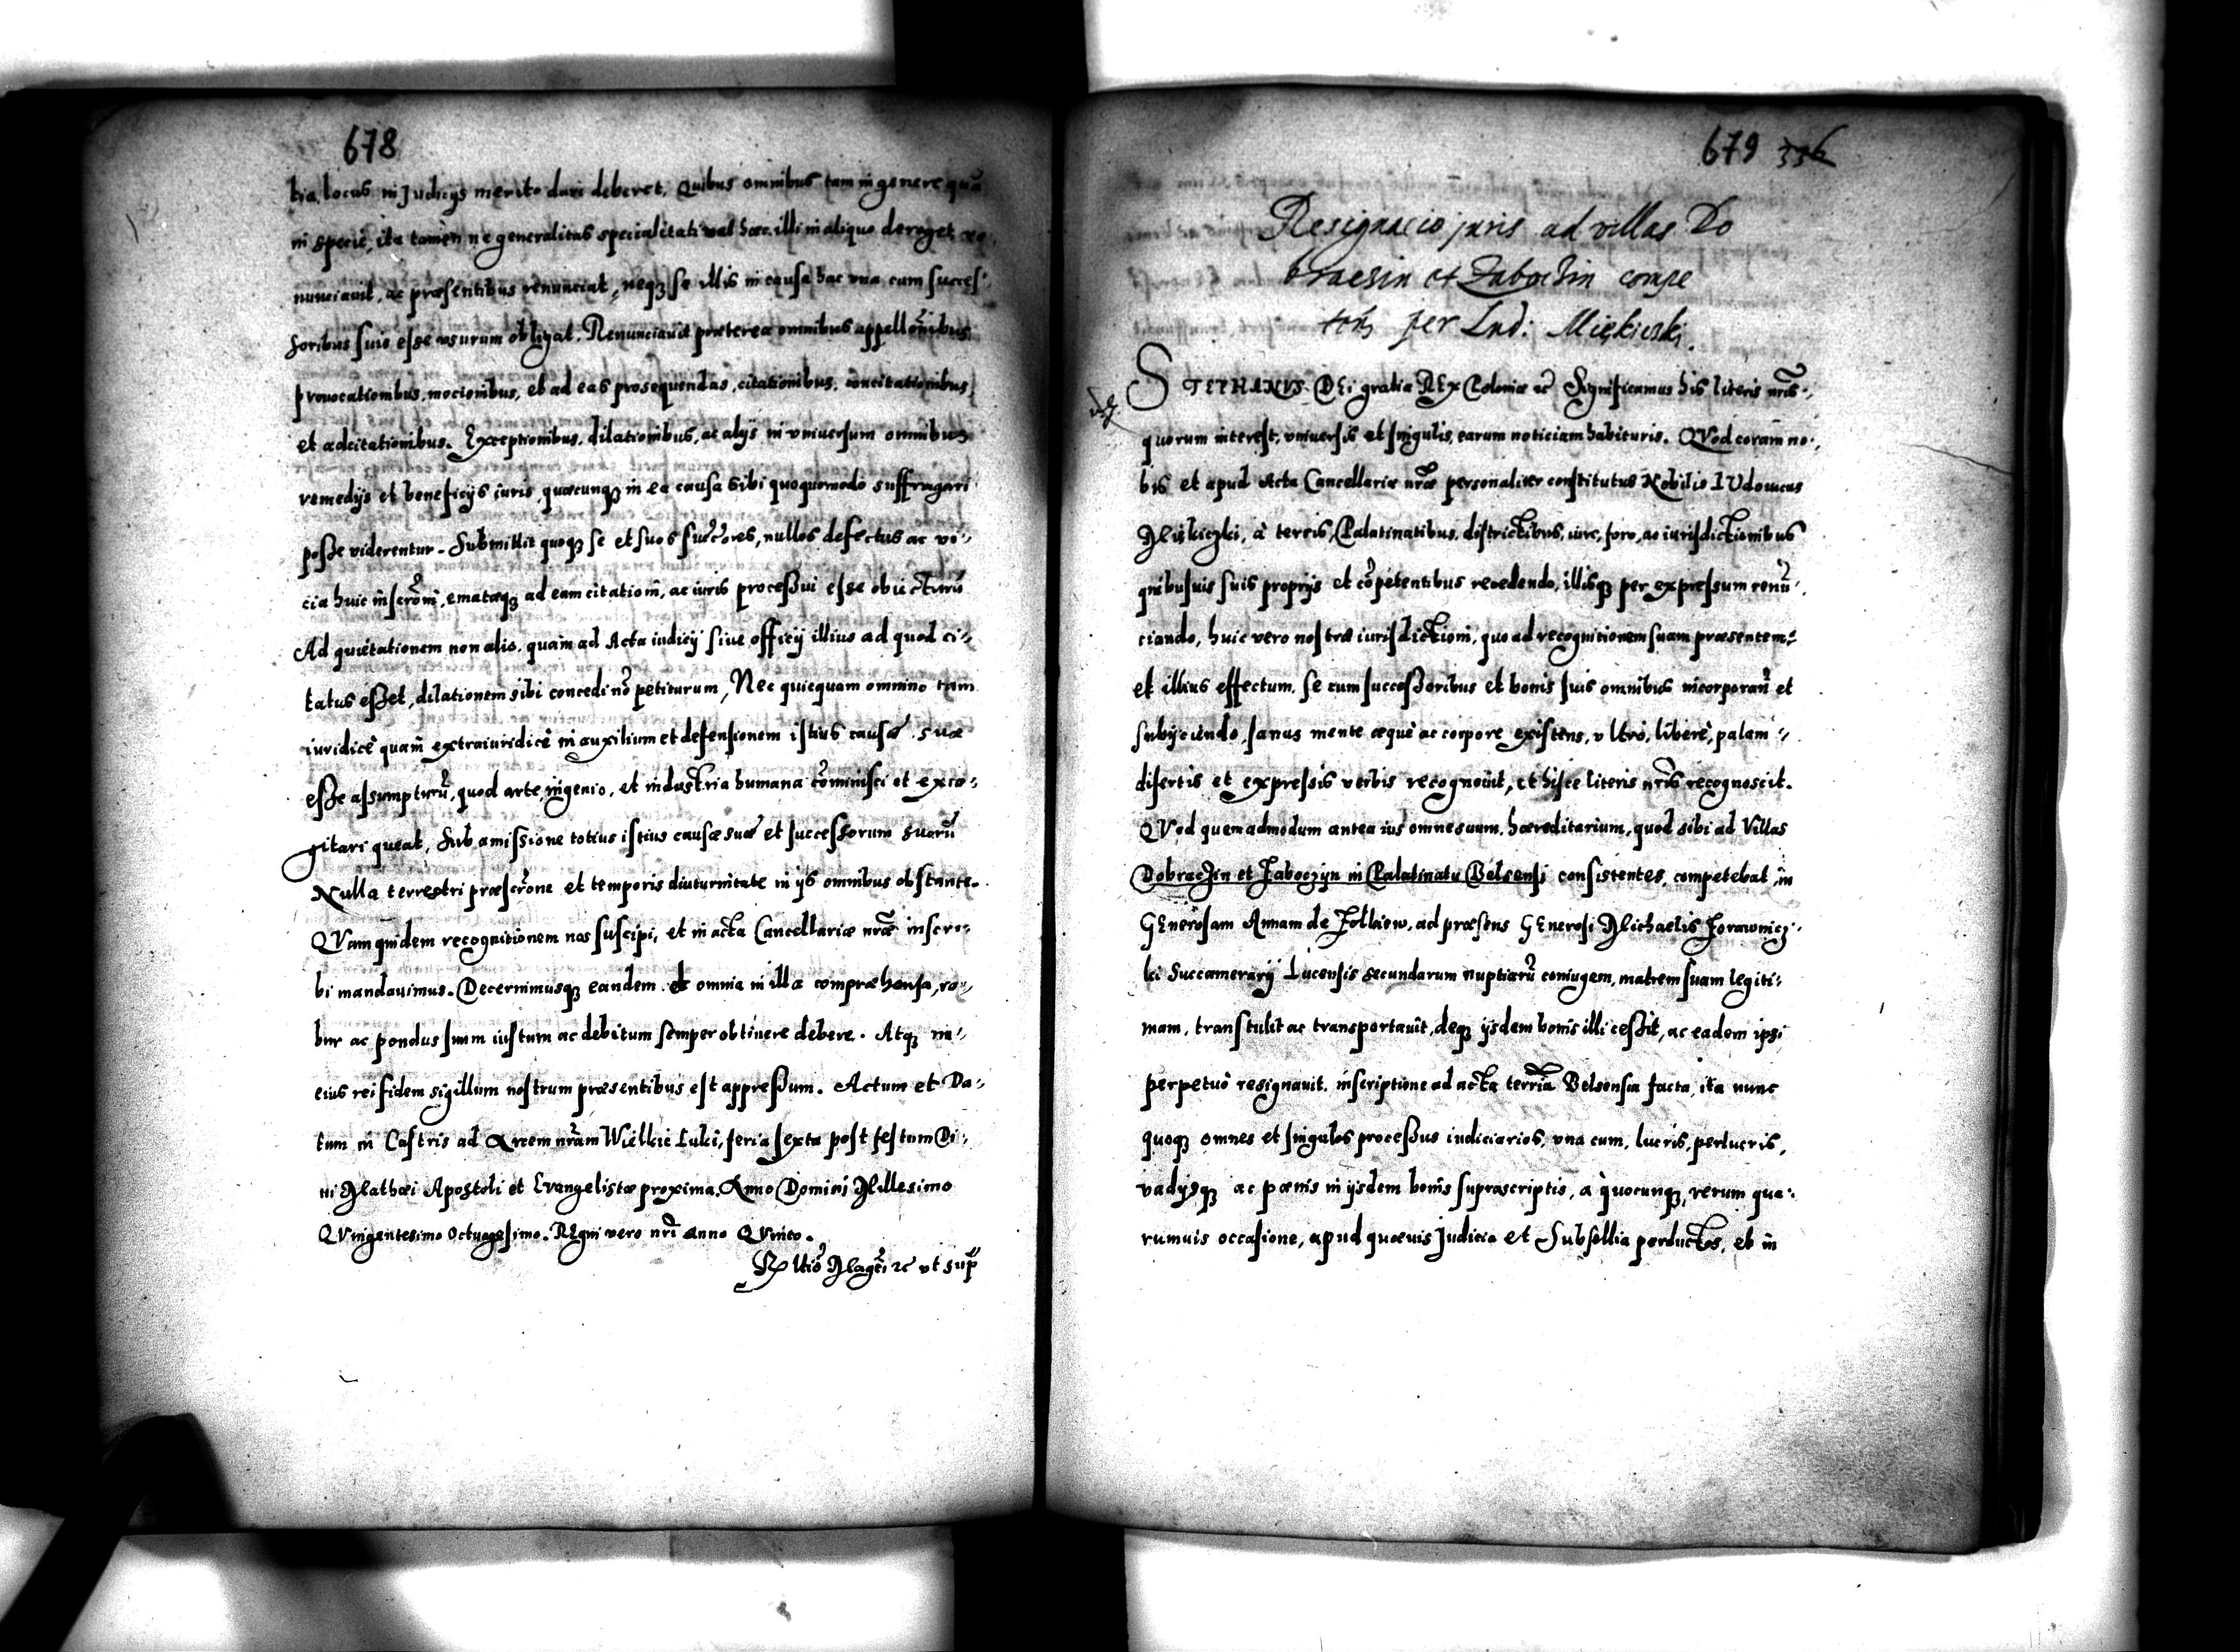 678
tia, locus in Judicijs merito dari deberet. Quibus omnibus tam in genere quā
in specie, ita tamen ne generalitas specialitati vel haec illi in aliquo deroget re-
nunciauit, ac præsentibus renunciat, neqȝ se illis in causa hac vna cum succes-
soribus suis esse vsurum obligat. Renunciauit præterea omnibus appellōnibus
prouocationibus, mocionibus, et ad eas prosequendas, citationibus, concitationibus,
et adcitationibus. Exceptionibus, dilationibus, ac alijs in vniuersum omnibus
remedijs et beneficijs iuris quæcunqȝ in ea causa sibi quoquomodo suffragari
posse viderentur. Submittit quoqȝ se et suos succores, nullos defectus ac vi-
cia huic inscrōni, emanatæqȝ ad eam citationi, ac iuris processui esse obiecturū
Ad quietationem non alio, quam ad Acta iudicij siue officij illius ad quod ci-
tatus esset, dilationem sibi concedi nō petiturum, Nec quicquam omnino tam
iuridicè quam extraiuridicè in auxilium et defensionem istius causæ suæ
esse assumpturū, quod arte, ingenio, et industria humana cōminisci et exco-
gitari queat, Sub amissione totius istius causæ suæ et successorum suorū
Nulla terrestri præscrōne et temporis diuturnitate in ijs omnibus obstante.
QVam quidem recognitionem nos suscipi, et in acta Cancellariæ nrae inscri-
bi mandauimus. Decernimusqȝ eandem et omnia in illa compræhensa, ro-
bur ac pondus suum iustum ac debitum semper obtinere debere. Atqȝ in
eius rei fidem sigillum nostrum præsentibus est appressum. Actum et Da-
tum in Castris ad Arcem nram Wielkie Luki, feria sexta post festum Di-
ui Mathæi Apostoli et Evangelistæ proxima. Anno Domini Millesimo
QVingentesimo Octuagesimo. REgni vero nri anno QVinto.
ut sup
679 336
Resignacio juris ad villas Do
braczin et Zaboczin compe
per Lud: Miękicski.
STEPHANVS DEi gratia REx Poloniæ etc Significamus his literis nris
quorum interest, vniuersis et singulis, earum noticiam habituris. QVod coram no-
bis et apud Acta Cancellariæ nræ personaliter constitutus Nobilis LVdouicus
Miękiczki, à terris, Palatinatibus, districtibus, iure, foro, ac iurisdictionibus
quibusuis suis proprijs et cōpetentibus recedendo, illisqȝ per expressum renū-
ciando, huic vero nostræ iurisdictioni, quo ad recognitionem suam præsentem
et illius effectum, se cum successoribus et bonis suis omnibus incorporan et
subijciendo, sanus mente æquè ac corpore existens, vltrò, liberè, palam
disertis et expressis verbis recognouit, et hisce literis nris recognoscit.
QVod quemadmodum antea ius omne suum, hæreditarium, quod sibi ad Villas
Dobraczin et Zaboczyn in Palatinatu Belsensi consistentes, competebat in
GEnerosam Annam de Zolkiew, ad præsens GEnerosi Michaelis Jorawnicz-
ki Succamerarij Lucensis secundarum nuptiarū coniugem, matrem suam legiti-
mam, transtulit ac transportauit, deqȝ ijsdem bonis illi cessit, ac eadem ipsi
perpetuò resignauit, inscriptione ad acta terria Belsensia facta, ita nunc
quoqȝ omnes et singulos processus iudiciarios, vna cum, lucris, perlucris,
vadijsqȝ ac pœnis in ijsdem bonis suprascriptis, a quocunqȝ, rerum qua-
rumuis occasione, apud quæuis Judicia et Subsellia perductos, et in